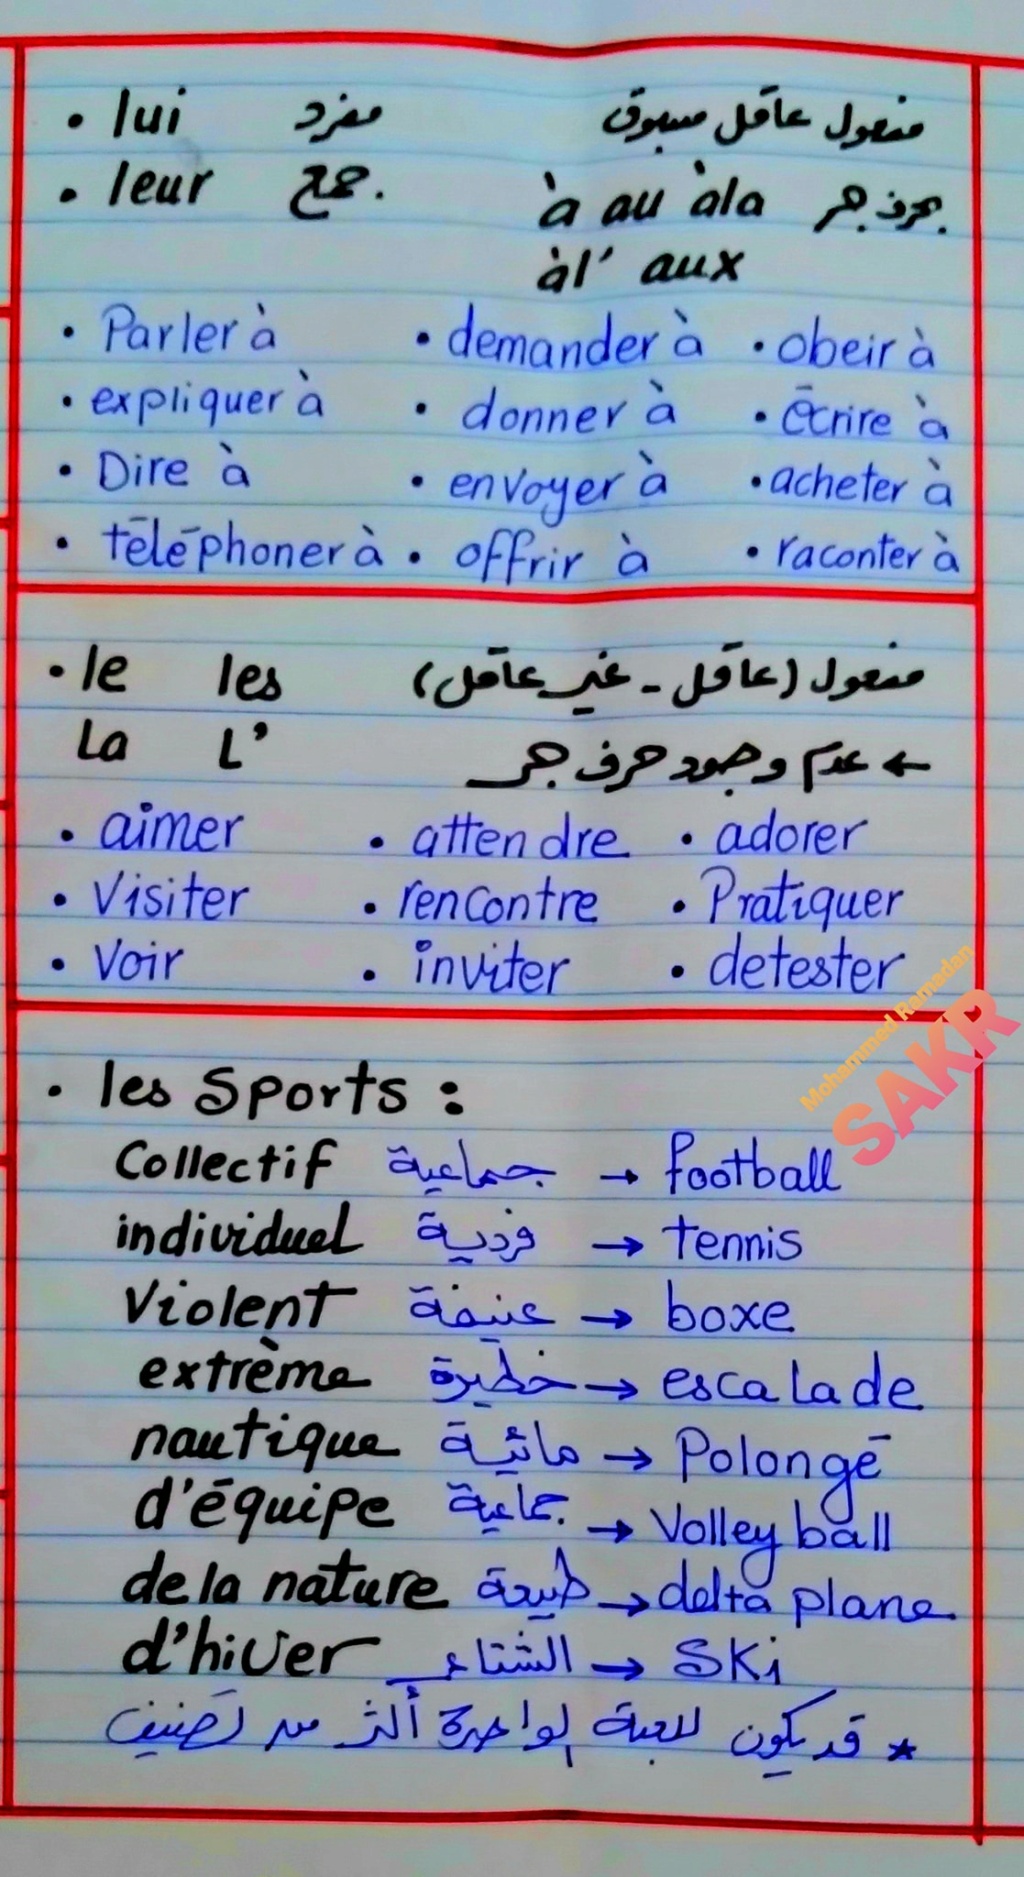 • lui مفرد مفعول عاقل مسبوق
• leur جمع. à au àla بحرف جر
àl' aux
• Parler à • demander à • obeir à
• expliquer à • donner à • ēcrire à
• Dire à • envoyer à • acheter à
• tēlēphoner à • offrir à • raconter à
• le les مفعول (عاقل - غير عاقل)
La L' ← عدم وجود حرف جر
• aimer • attendre • adorer
• Visiter • rencontre • Pratiquer
• Voir • inviter • detester
Mohammed Ramadan
SAKR
• les Sports :
Collectif جماعية → football
individuel فردية → tennis
Violent عنيفة → boxe
extrème خطيرة → escalade
nautique مائية → Polongē
d'équipe جماعية → Volley ball
de la nature طبيعة → delta plane
d'hiver الشتاء → Ski
* قد يكون للعبة لواحدة أكثر من تصنيف